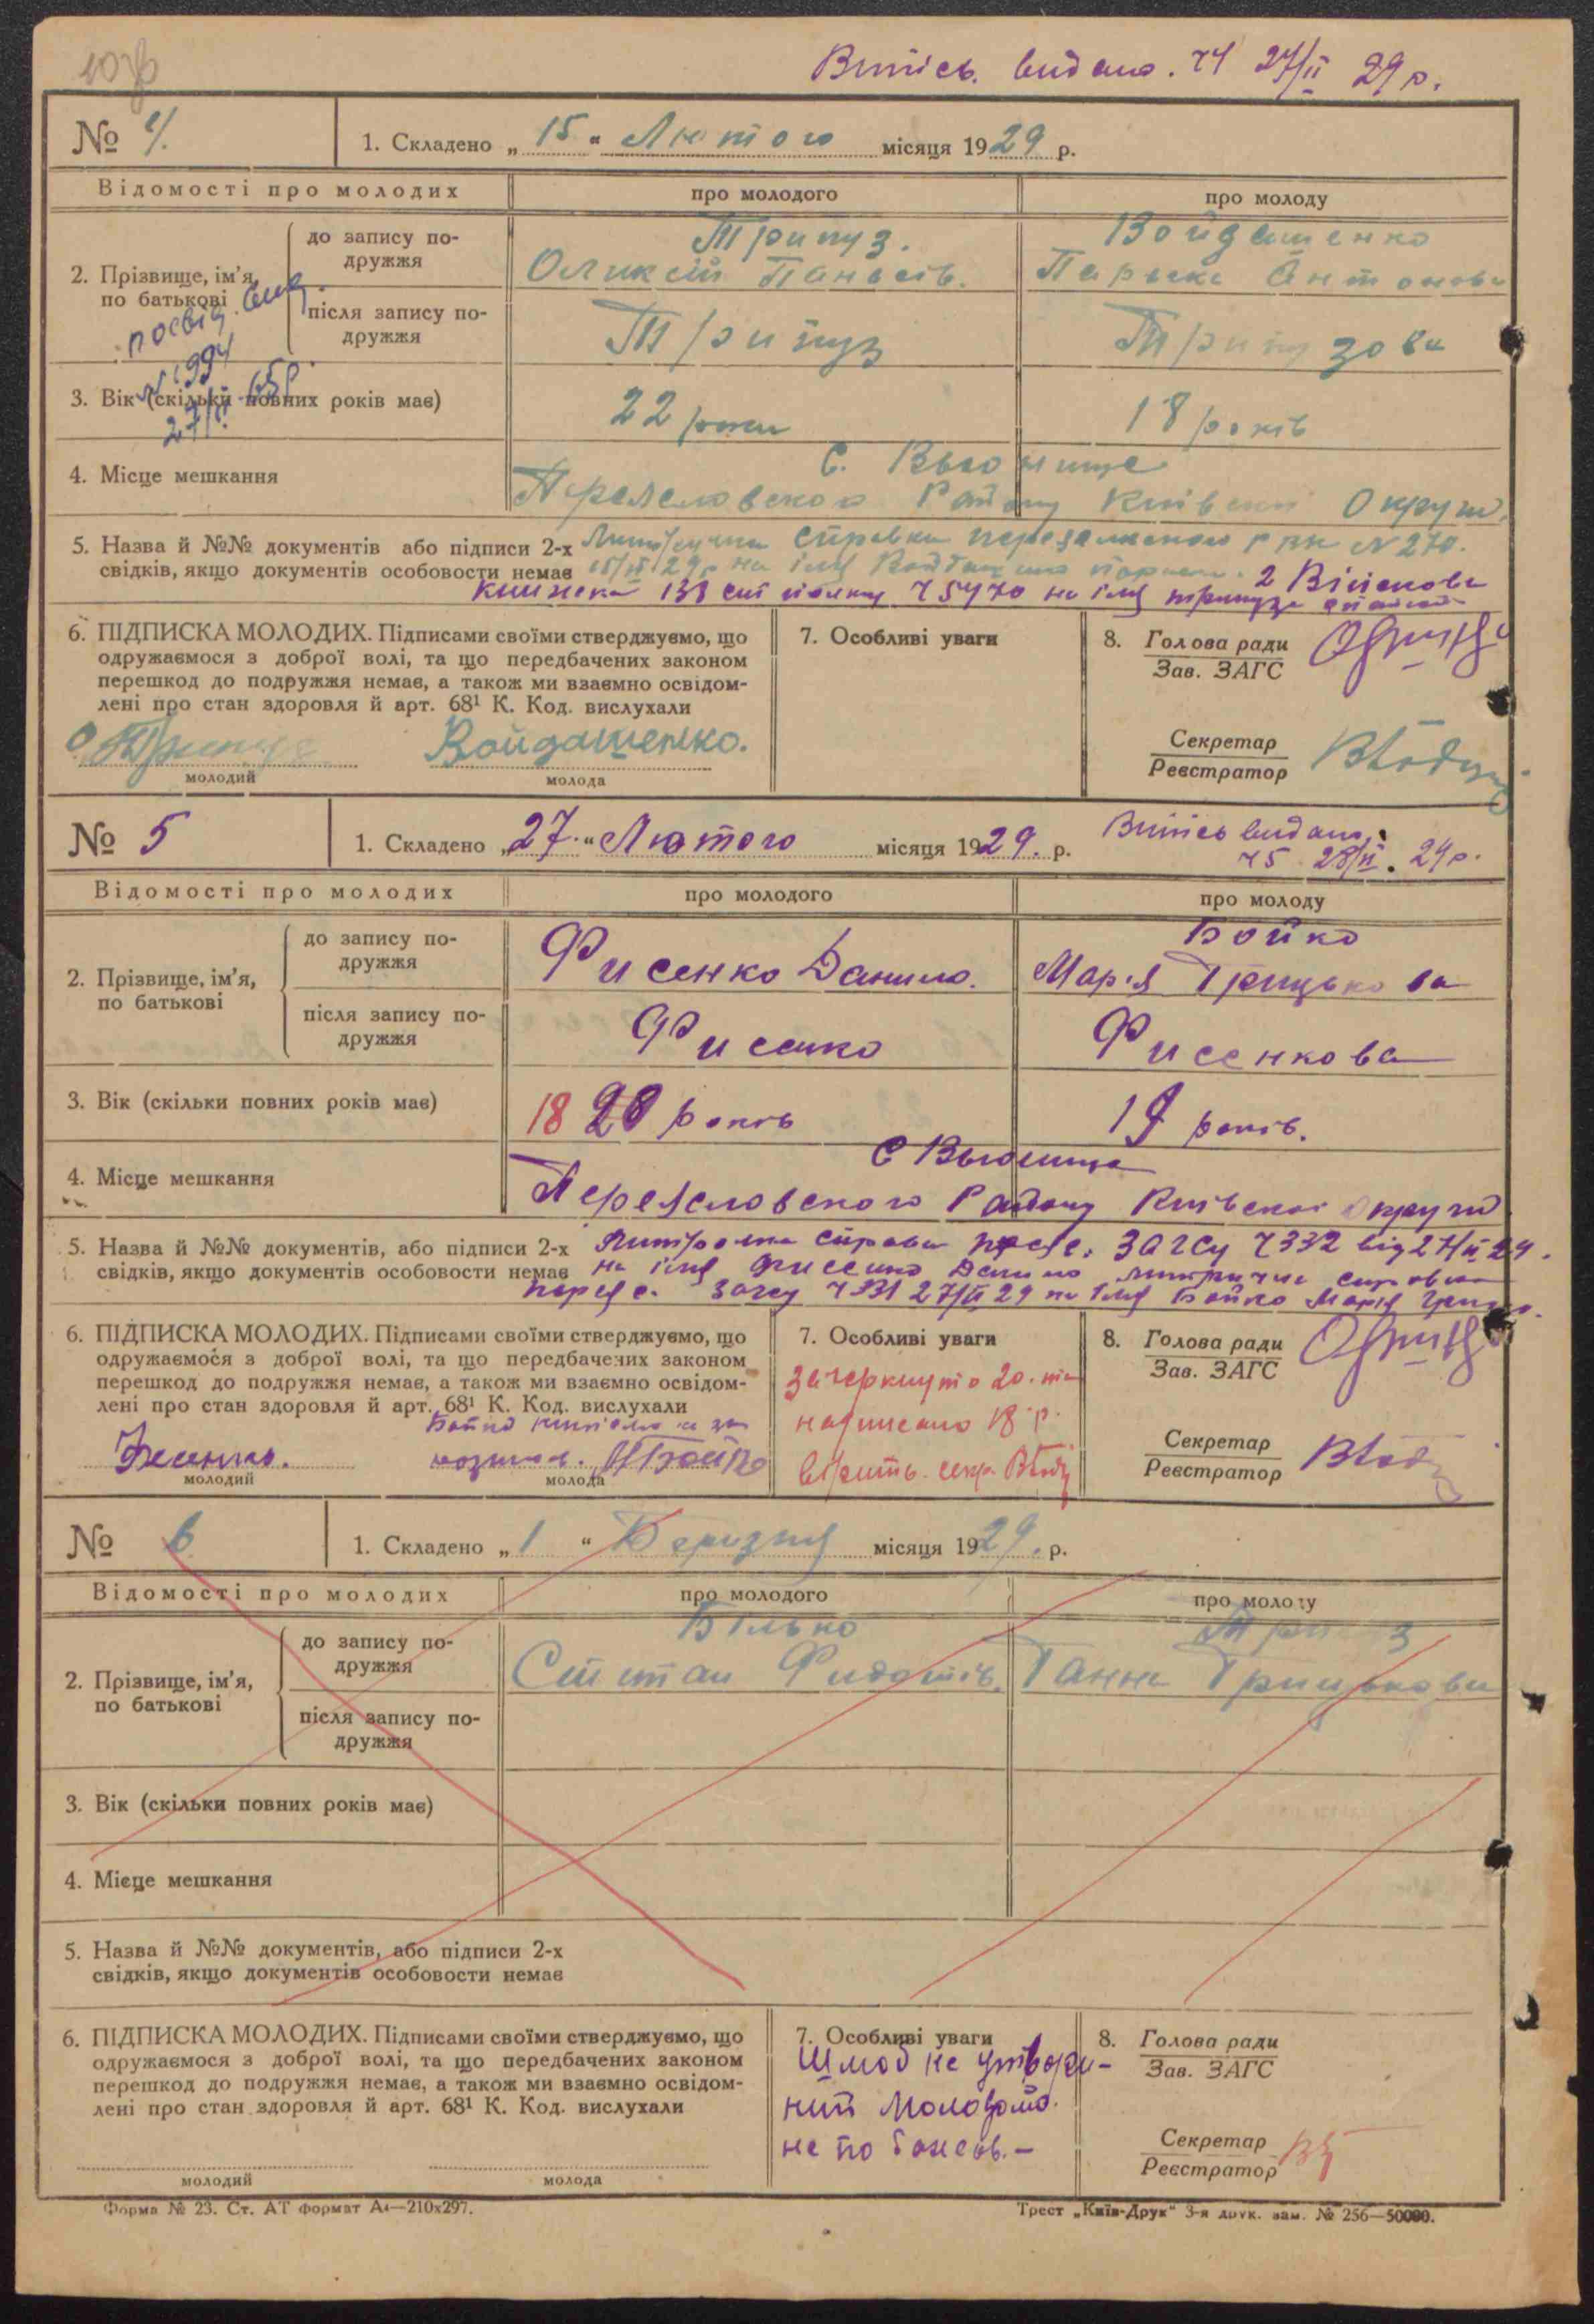 Випісь видано. ч4 27/ІІ 29 р.
№ 4. 1. Складено „ 15 “ Лютого місяця 1929 р.
Відомості про молодих про молодого про молоду
2. Прізвище, ім'я, по батькові
до запису по-
дружжя
Трипуз. Войдашенко
Оликсій Панасів. Парыска Антонова
після запису по-
дружжя
Трипуз Трипузова
посвід. вид
№ 994
27/ІІ 65р.
3. Вік (скільки повних років має) 22 роки 18 років
4. Місце мешкання с. Вьюнище
Переяславского Району Київскої Округи
5. Назва й №№ документів або підписи 2-х
свідків, якщо документів особовости немає
справка N 270.
15/ІІ 29р на імя 2 Війскова
книжка 138 на імя
6. ПІДПИСКА МОЛОДИХ. Підписами своїми стверджуємо, що
одружаємося з доброї волі, та що передбачених законом
перешкод до подружжя немає, а також ми взаємно освідом-
лені про стан здоровля й арт. 68¹ К. Код. вислухали
О Трипуз Войдашенко.
молодий молода
7. Особливі уваги
8. Голова ради
Зав. ЗАГС
Секретар
Реєстратор
№ 5 1. Складено „ 27 “ Лютого місяця 1929. р.
Випісь видано.
ч5 28/ІІ. 29р.
Відомості про молодих про молодого про молоду
2. Прізвище, ім'я,
по батькові
до запису по-
дружжя
Бойко
Фисенко Данило. Марія Грицькова
після запису по-
дружжя
Фисенко Фисенкова
3. Вік (скільки повних років має) 18 20 років 19 років.
4. Місце мешкання с Вьюнище
Переяславского Району Київскої округи
5. Назва й №№ документів, або підписи 2-х
свідків, якщо документів особовости немає
Митрична справка Переяс. ЗАГСу ч332 від 27/ІІ 29.
на імя Фиссенко Данило митрична справка
Переяс. Загсу ч331 27/ІІ 29 на імя Бойко Марія Грицьк.
6. ПІДПИСКА МОЛОДИХ. Підписами своїми стверджуємо, що
одружаємося з доброї волі, та що передбачених законом
перешкод до подружжя немає, а також ми взаємно освідом-
лені про стан здоровля й арт. 68¹ К. Код. вислухали
Фесенко. Бойко
молодий молода
7. Особливі уваги
зачеркнуто 20. та
написано 18 р.
вірить. секр.
8. Голова ради
Зав. ЗАГС
Секретар
Реєстратор
№ 6 1. Складено „ 1 “ Березня місяця 1929. р.
Відомості про молодих про молодого про молоду
2. Прізвище, ім'я,
по батькові
до запису по-
дружжя
Білько Трипуз
Степан Федотів. Ганна Грицькова
після запису по-
дружжя
3. Вік (скільки повних років має)
4. Місце мешкання
5. Назва й №№ документів, або підписи 2-х
свідків, якщо документів особовости немає
6. ПІДПИСКА МОЛОДИХ. Підписами своїми стверджуємо, що
одружаємося з доброї волі, та що передбачених законом
перешкод до подружжя немає, а також ми взаємно освідом-
лені про стан здоровля й арт. 68¹ К. Код. вислухали
молодий молода
7. Особливі уваги
Шлюб не утворе-
ний
не
8. Голова ради
Зав. ЗАГС
Секретар
Реєстратор
Форма № 23. Ст. АТ формат А4—210х297. Трест „Київ-Друк“ 3-я друк. зам. № 256—50000.